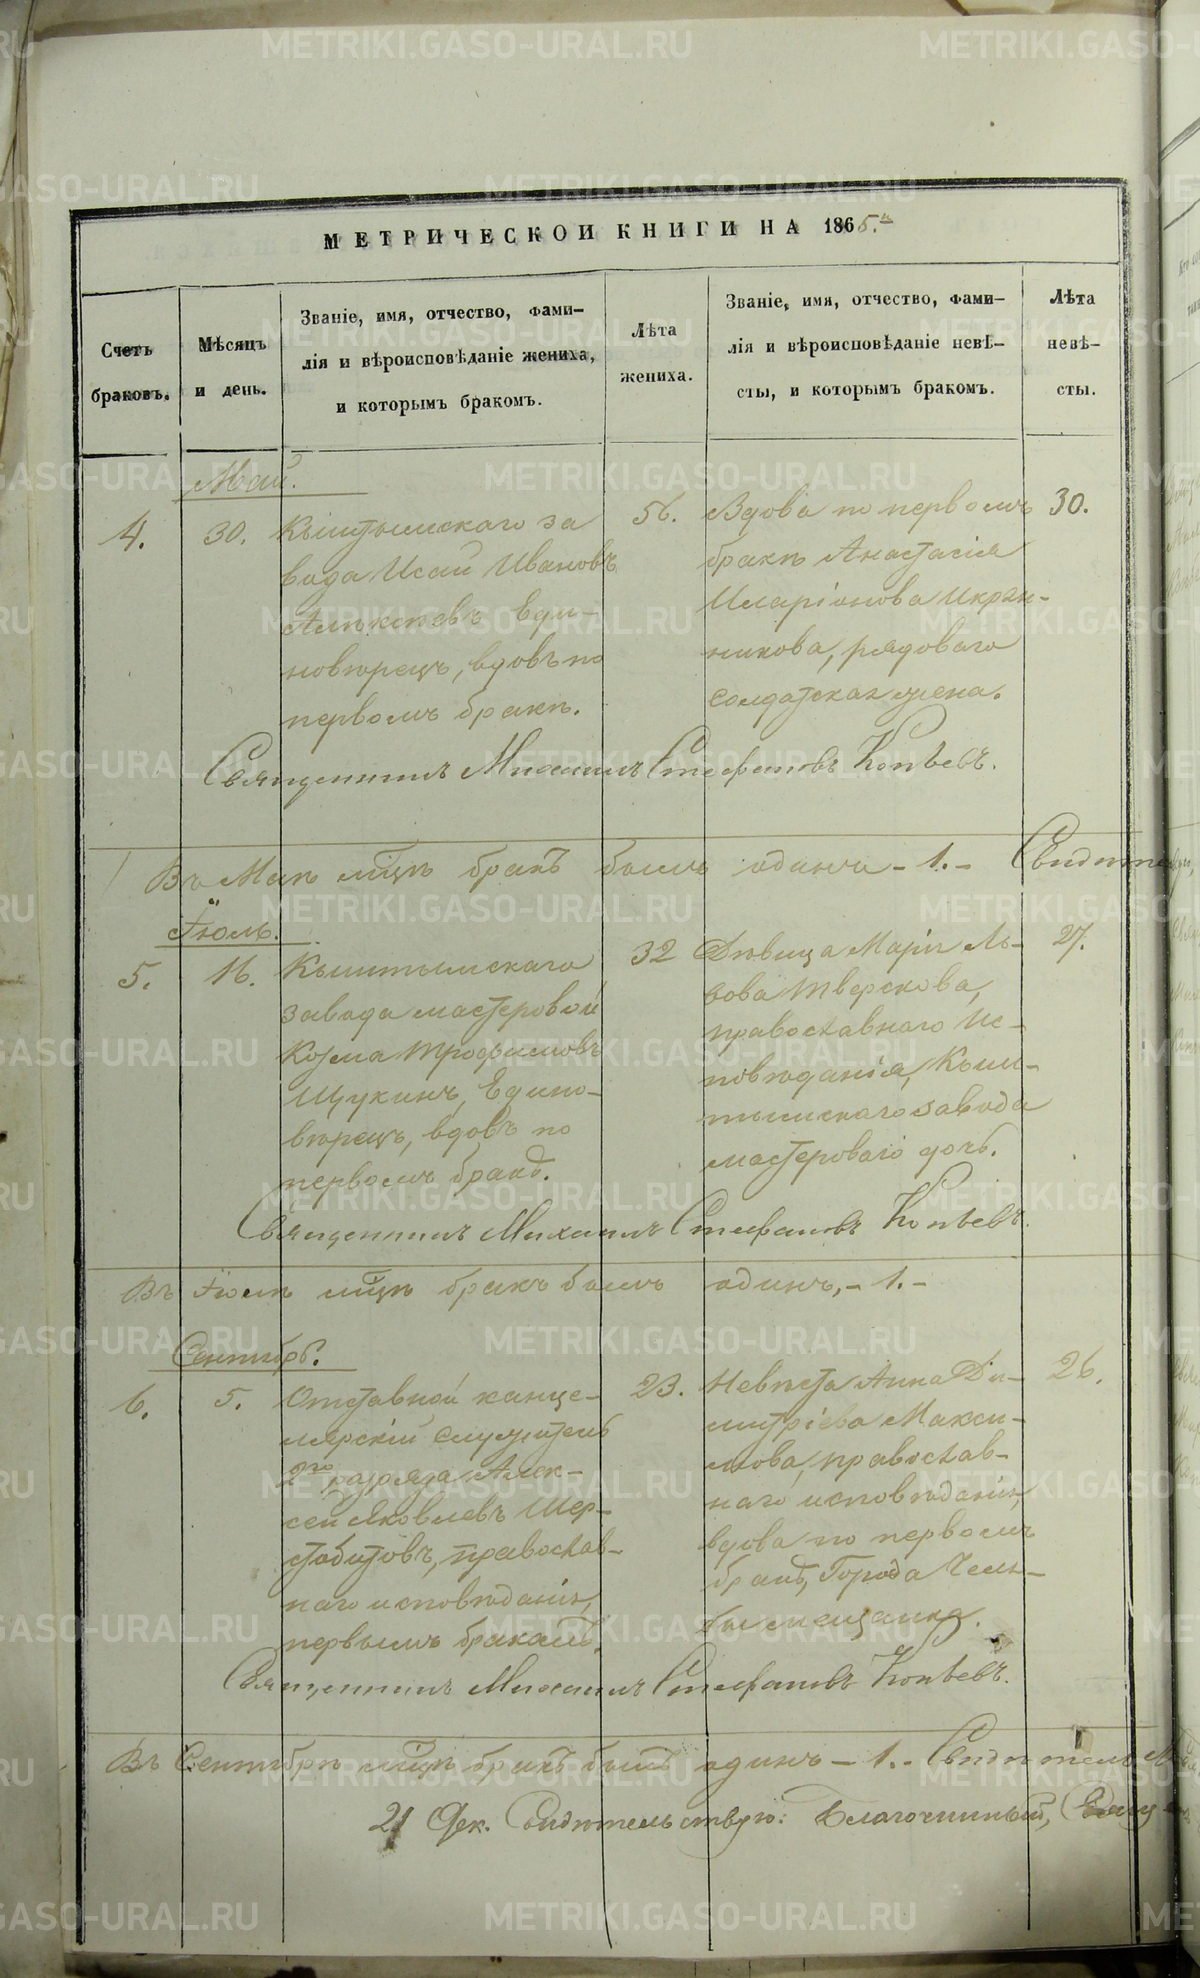 МЕТРИЧЕСКОИ КНИГИ НА 1865.й
Счетъ
браковъ.
Мѣсяцъ
и день.
Званіе, имя, отчество, фами-
лія и вѣроисповѣданіе жениха,
и которымъ бракомъ.
Лѣта
жениха.
Званіе, имя, отчество, фами-
лія и вѣроисповѣданіе невѣ-
сты, и которымъ бракомъ.
Лѣта
невѣ-
сты.
Май.
4.
30.
Кыштымскаго за
вода Исаи Ивановъ
Алѣксѣевъ Еди-
новѣрецъ, вдовъ по
первомъ бракѣ.
56.
Вдова по первомъ
бракѣ Анастасія
Иларіонова Икрян-
никова, рядоваго
солдатская жена.
30.
Священникъ Михаилъ Стефановъ Копѣевъ.
Въ Маѣ мцѣ бракъ былъ одинъ - 1. -
Іюль.
5.
16.
Кыштымскаго
завода мастеровой
Козма Трофимовъ
Щукинъ, Едино-
вѣрецъ, вдовъ по
первомъ бракѣ.
32
Дѣвица Марія Ль-
вова Тверскова,
православнаго ис-
повѣданія, Кыш-
тымскаго завода
мастероваго дочь.
27.
Священникъ Михаилъ Стефановъ Копѣевъ.
Въ Іюлѣ мцѣ бракъ былъ одинъ, - 1. -
Сентябрь.
6.
5.
Отставной канце-
лярскій служитель
2го разряда Алек-
сѣй Яковлевъ Шер-
стобитовъ, православ-
наго исповѣданія,
первымъ бракомъ.
23.
Невѣста Анна Ди-
митріева Макси-
мова, православ-
наго исповѣданія,
вдова по первомъ
бракѣ, Города Челя-
бы мещанка.
26.
Священникъ Михаилъ Стефановъ Копѣевъ.
Въ Сентябрѣ мцѣ бракъ былъ одинъ - 1. -
21 Дек. Свидѣтельствую: Благочинный,
METRIKI.GASO-URAL.RU